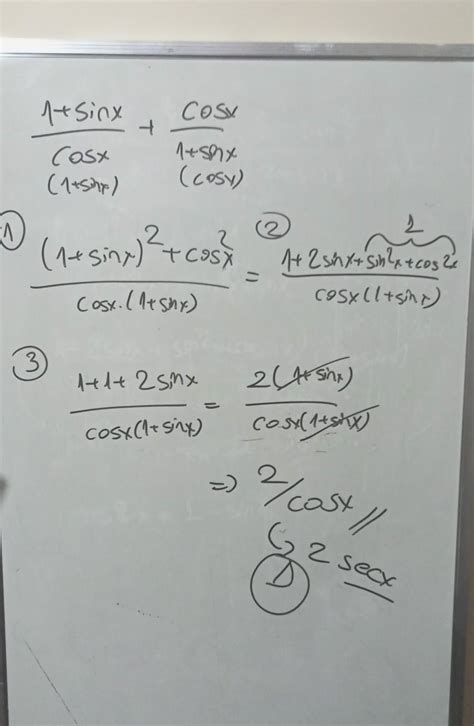 1+sinx/cosx + cosx/1+sinx
(1+sinx) (cosx)
1 (1+sinx)²+cos²x/cosx.(1+sinx) = 2 1+2sinx+sin²x+cos²x/cosx(1+sinx) 1
3 1+1+2sinx/cosx(1+sinx) = 2(1+sinx)/cosx(1+sinx)
=> 2/cosx //
2 secx
D